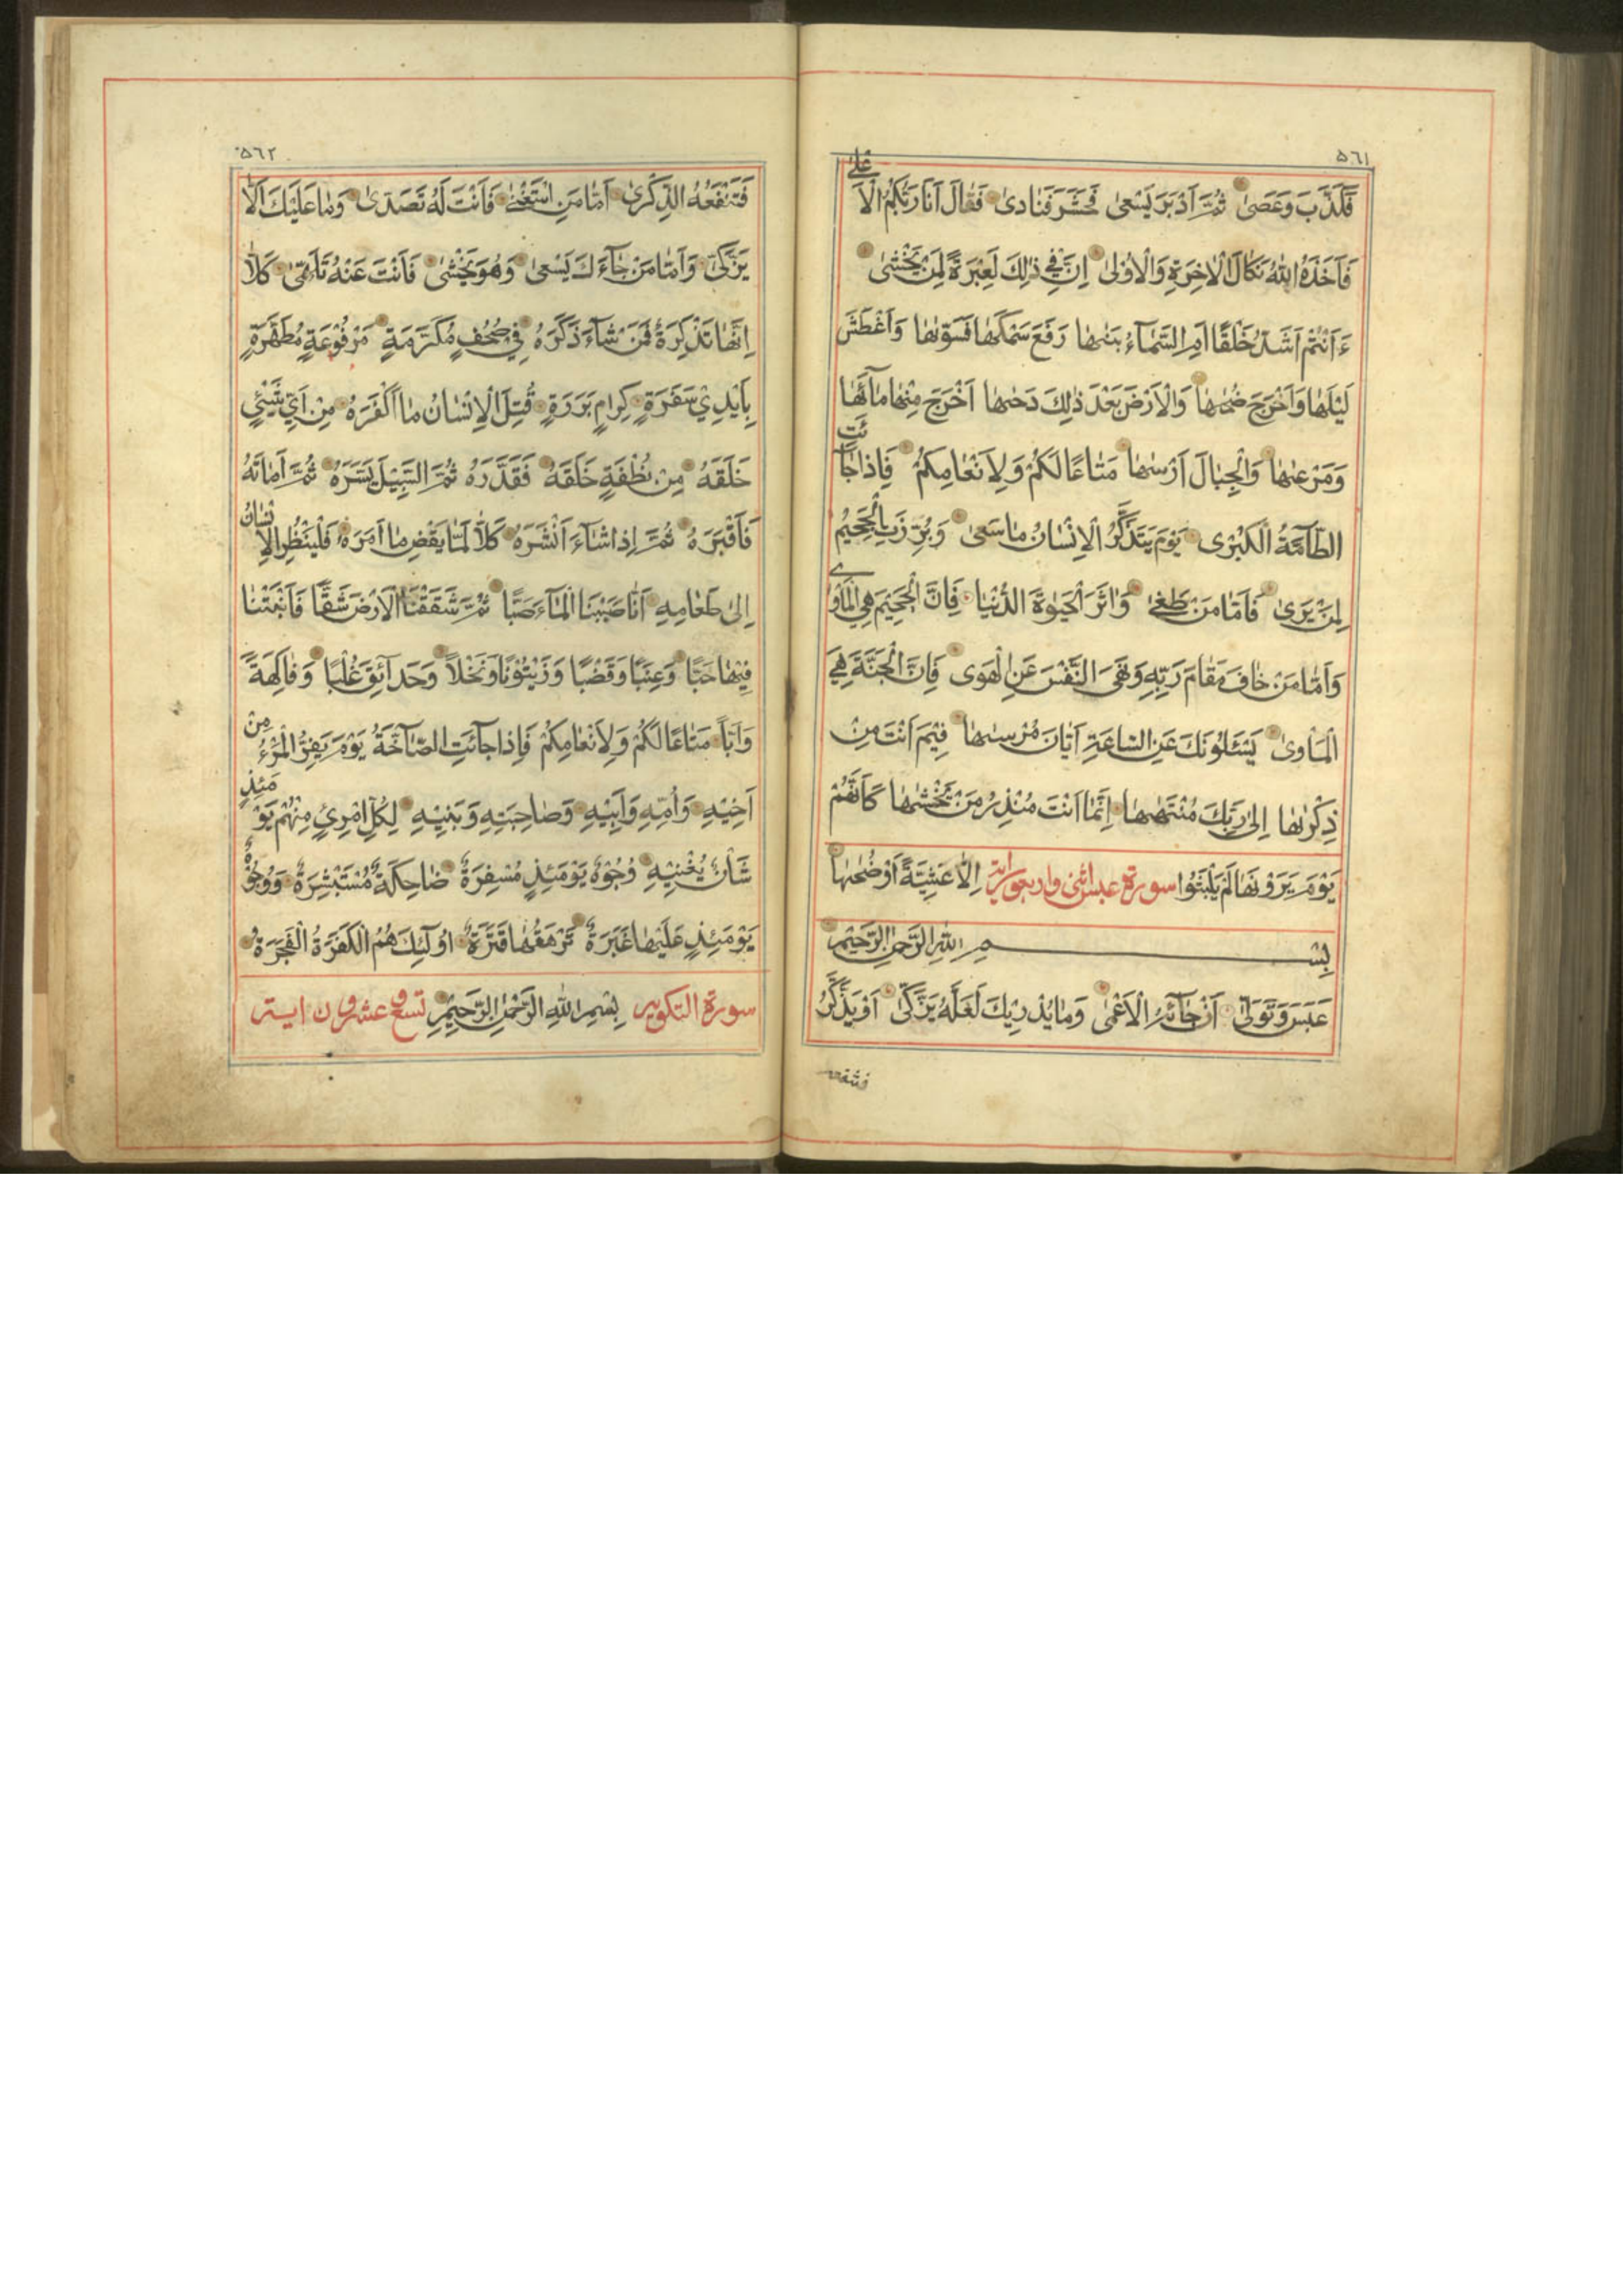 ٥٦١
فَكَذَّبَ وَعَصٰى ثُمَّ اَدْبَرَ يَسْعٰى فَحَشَرَ فَنَادٰى فَقَالَ اَنَا رَبُّكُمُ الْاَعْلٰى
فَاَخَذَهُ اللّٰهُ نَكَالَ الْاٰخِرَةِ وَالْاُوْلٰى اِنَّ فِي ذٰلِكَ لَعِبْرَةً لِمَنْ يَخْشٰى
ءَاَنْتُمْ اَشَدُّ خَلْقًا اَمِ السَّمَآءُ بَنٰىهَا رَفَعَ سَمْكَهَا فَسَوّٰىهَا وَاَغْطَشَ
لَيْلَهَا وَاَخْرَجَ ضُحٰىهَا وَالْاَرْضَ بَعْدَ ذٰلِكَ دَحٰىهَا اَخْرَجَ مِنْهَا مَآئَهَا
وَمَرْعٰىهَا وَالْجِبَالَ اَرْسٰىهَا مَتَاعًا لَكُمْ وَلِاَنْعَامِكُمْ فَاِذَا جَائَتِ
الطَّآمَّةُ الْكُبْرٰى يَوْمَ يَتَذَكَّرُ الْاِنْسَانُ مَا سَعٰى وَبُرِّزَتِ الْجَحِيْمُ
لِمَنْ يَرٰى فَاَمَّا مَنْ طَغٰى وَاٰثَرَ الْحَيٰوةَ الدُّنْيَا فَاِنَّ الْجَحِيْمَ هِيَ الْمَاْوٰى
وَاَمَّا مَنْ خَافَ مَقَامَ رَبِّهِ وَنَهَى النَّفْسَ عَنِ الْهَوٰى فَاِنَّ الْجَنَّةَ هِيَ
الْمَاْوٰى يَسْئَلُوْنَكَ عَنِ السَّاعَةِ اَيَّانَ مُرْسٰىهَا فِيْمَ اَنْتَ مِنْ
ذِكْرٰىهَا اِلٰى رَبِّكَ مُنْتَهٰىهَا اِنَّمَا اَنْتَ مُنْذِرُ مَنْ يَخْشٰىهَا كَاَنَّهُمْ
يَوْمَ يَرَوْنَهَا لَمْ يَلْبَثُوْا سورة عبس اثنى واربعون اية اِلَّا عَشِيَّةً اَوْ ضُحٰىهَا
بِسْمِ اللّٰهِ الرَّحْمٰنِ الرَّحِيْمِ
عَبَسَ وَتَوَلّٰى اَنْ جَآئَهُ الْاَعْمٰى وَمَا يُدْرِيْكَ لَعَلَّهُ يَزَّكّٰى اَوْ يَذَّكَّرُ
فتنفعه
٥٦٢
فَتَنْفَعُهُ الذِّكْرٰى اَمَّا مَنِ اسْتَغْنٰى فَاَنْتَ لَهُ تَصَدّٰى وَمَا عَلَيْكَ اَلَّا
يَزَّكّٰى وَاَمَّا مَنْ جَآءَكَ يَسْعٰى وَهُوَ يَخْشٰى فَاَنْتَ عَنْهُ تَلَهّٰى كَلَّا
اِنَّهَا تَذْكِرَةٌ فَمَنْ شَآءَ ذَكَرَهُ فِي صُحُفٍ مُكَرَّمَةٍ مَرْفُوْعَةٍ مُطَهَّرَةٍ
بِاَيْدِيْ سَفَرَةٍ كِرَامٍ بَرَرَةٍ قُتِلَ الْاِنْسَانُ مَا اَكْفَرَهُ مِنْ اَيِّ شَيْئٍ
خَلَقَهُ مِنْ نُطْفَةٍ خَلَقَهُ فَقَدَّرَهُ ثُمَّ السَّبِيْلَ يَسَّرَهُ ثُمَّ اَمَاتَهُ
فَاَقْبَرَهُ ثُمَّ اِذَا شَآءَ اَنْشَرَهُ كَلَّا لَمَّا يَقْضِ مَا اَمَرَهُ فَلْيَنْظُرِ الْاِنْسَانُ
اِلٰى طَعَامِهِ اَنَّا صَبَبْنَا الْمَآءَ صَبًّا ثُمَّ شَقَقْنَا الْاَرْضَ شَقًّا فَاَنْبَتْنَا
فِيْهَا حَبًّا وَعِنَبًا وَقَضْبًا وَزَيْتُوْنًا وَنَخْلًا وَحَدَآئِقَ غُلْبًا وَفَاكِهَةً
وَاَبًّا مَتَاعًا لَكُمْ وَلِاَنْعَامِكُمْ فَاِذَا جَآئَتِ الصَّآخَّةُ يَوْمَ يَفِرُّ الْمَرْءُ مِنْ
اَخِيْهِ وَاُمِّهِ وَاَبِيْهِ وَصَاحِبَتِهِ وَبَنِيْهِ لِكُلِّ امْرِئٍ مِنْهُمْ يَوْمَئِذٍ
شَاْنٌ يُغْنِيْهِ وُجُوْهٌ يَوْمَئِذٍ مُسْفِرَةٌ ضَاحِكَةٌ مُسْتَبْشِرَةٌ وَوُجُوْهٌ
يَوْمَئِذٍ عَلَيْهَا غَبَرَةٌ تَرْهَقُهَا قَتَرَةٌ اُولٰٓئِكَ هُمُ الْكَفَرَةُ الْفَجَرَةُ
سورة التكوير بِسْمِ اللّٰهِ الرَّحْمٰنِ الرَّحِيْمِ تسع وعشرون اية